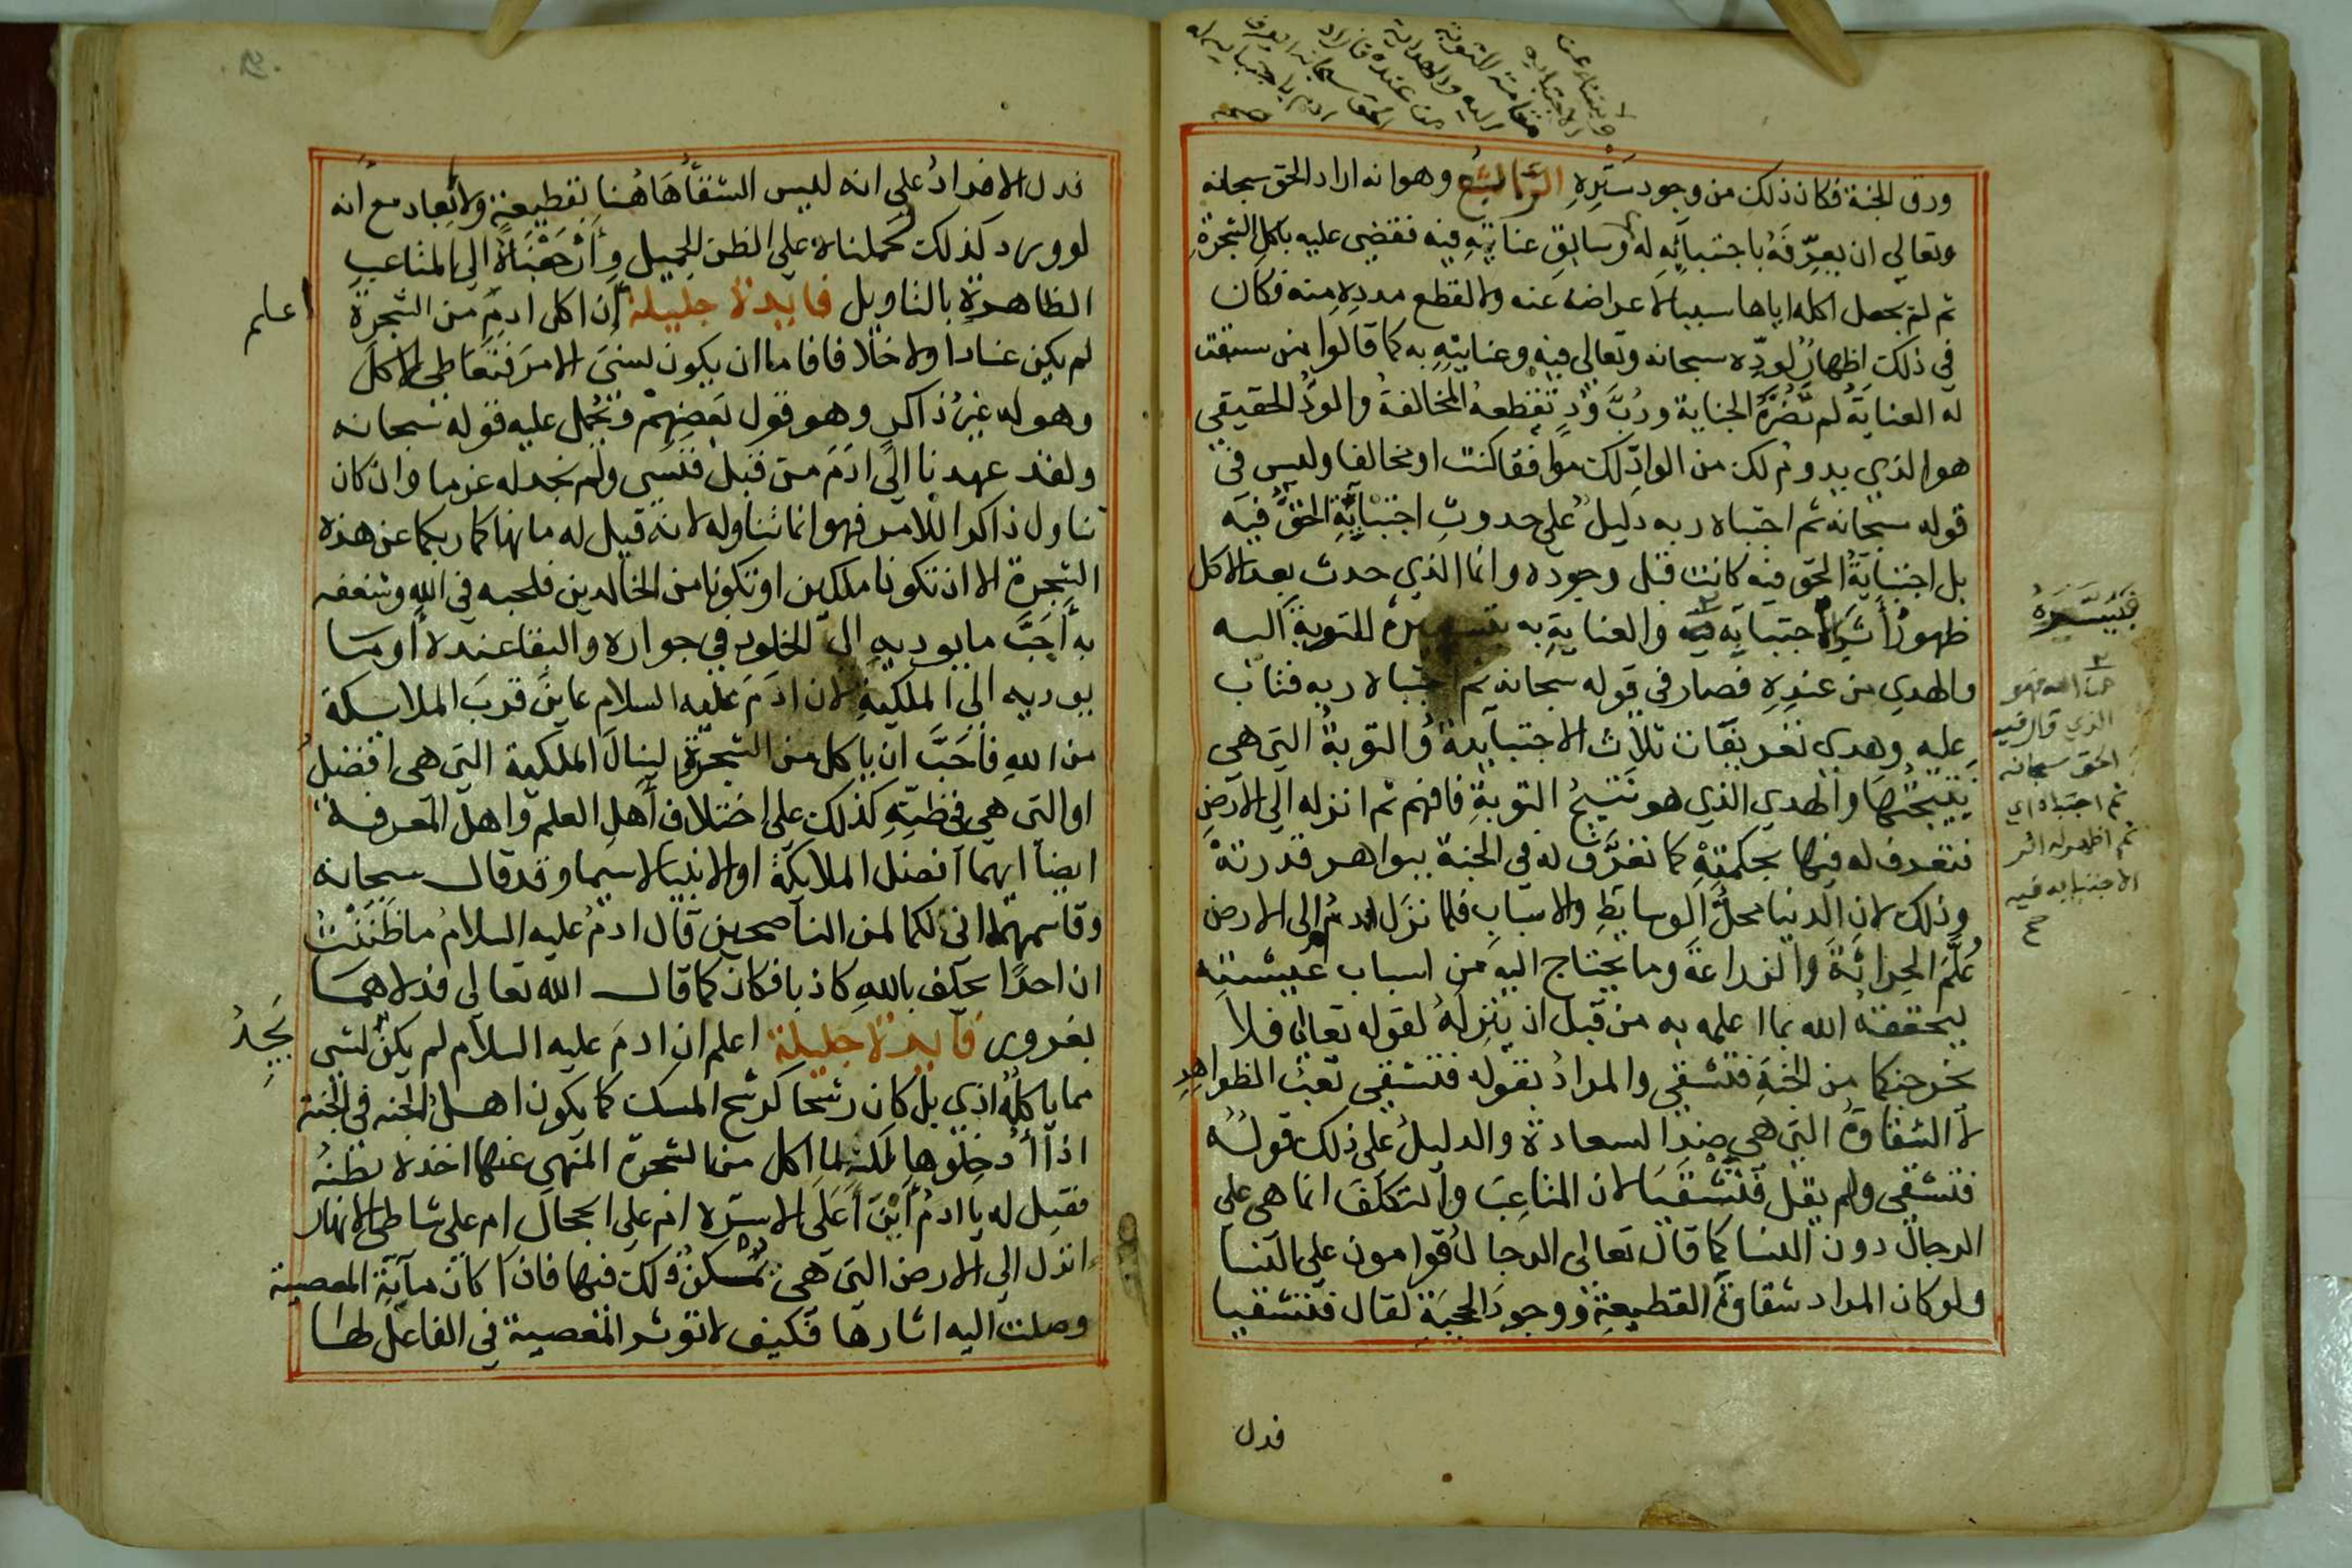 ورق الجنة فكان ذلك من وجود ستره الرابع وهو انه اراد الحق سبحانه
وتعالى ان يعرفه باجتبائه له وسابق عنايته فيه فقضى عليه باكل الشجرة
ثم لم يجعل اكله اياها سببا لاعراضه عنه ولا لقطع مدده منه فكان
في ذلك اظهار لوده سبحانه وتعالى فيه وعنايته به كما قالوا من سبقت
له العناية لم تضره الجناية ورب ود تقطعه المخالفة والود الحقيقي
هو الذي يدوم لك من الواد لك موافقا كنت او مخالفا وليس في
قوله سبحانه ثم اجتباه ربه دليل على حدوث اجتبائية الحق فيه
بل اجتبائية الحق فيه كانت قبل وجوده وانما الذي حدث بعد الاكل
ظهور أثر الاجتبايه فيه والعناية به للتوبة اليه
والهدي من عنده فصار في قوله سبحانه ثم اجتباه ربه فتاب
عليه وهدى تعريفات ثلاث الاجتبايية والتوبة التي هي
نتيجتها والهدي الذي هو نتيج التوبة فافهم ثم انزله الى الارض
فتعرف له فيها بحكمته كما تعرف له في الجنة ببواهر قدرته
وذلك لان الدنيا محل الوسايط والاسباب فلما نزل ادم الى الارض
علم الحراثة والزراعة وما يحتاج اليه من اسباب عيشته
ليحققه الله بما اعلمه به من قبل ان ينزله لقوله تعالى فلا
يخرجنكما من الجنة فتشقى والمراد بقوله فتشقى تعب الظواهر
لا الشقاوة التي هي ضد السعادة والدليل على ذلك قوله
فتشقى ولم يقل فتشقيا لان المتاعب والتكلف انما هي على
الرجال دون النسا كما قال تعالى الرجال قوامون على النسا
ولو كان المراد شقاوة القطيعة ووجود الحجبة لقال فتشقيا
فدل
فيسره
الذي قال فيه
الحق سبحانه
ثم اجتباه اي
ثم اظهر له اثر
الاجتبايه فيه
فدل الافراد على انه ليس الشقاء هاهنا بقطيعة ولا ابعاد مع انه
لو ورد كذلك لحملناه على الظن الجميل وأرجعناه الى المتاعب
الظاهرة بالتاويل فايدة جليلة ان اكل ادم من الشجرة
اعلم
لم يكن عنادا ولا خلافا فاما ان يكون نسي الامر فتعاطى الاكل
وهو له غير ذاكر وهو قول بعضهم وتحمل عليه قوله سبحانه
ولقد عهدنا الى ادم من قبل فنسي ولم نجد له عزما وان كان
تناول ذاكرا للامر فهو انما تناوله لانه قيل له ما نهاكما ربكما عن هذه
الشجرة الا ان تكونا ملكين او تكونا من الخالدين فلحبه في الله وشغفه
به أحب ما يوديه الى الخلود في جواره والبقا عنده أو ما
يوديه الى الملكية لان ادم عليه السلام عاين قرب الملايكة
من الله فأحب ان ياكل من الشجرة لينال الملكية التي هي افضل
او التي هي في ظنه كذلك على اختلاف أهل العلم واهل المعرفة
ايضا ايهما افضل الملايكة او الانبيا لاسيما وقد قال سبحانه
وقاسمهما اني لكما لمن الناصحين قال ادم عليه السلام ما ظننت
ان احدا يحلف بالله كاذبا فكان كما قال الله تعالى فدلاهما
بغرور فايدة جليلة اعلم ان ادم عليه السلام لم يكن لشي
مما ياكله اذي بل كان رشحا كرشح المسك كما يكون اهل الجنه في الجنة
اذا أدخلوها لكنه لما اكل من الشجرة المنهي عنها اخذه بطنه
فقيل له يا ادم أين أعلى الاسرة ام على الحجال ام على شاطي الانهار
انزل الى الارض التي هي يمكن ذلك فيها فاذا كان مآية المعصية
وصلت اليه اثارها فكيف لا توثر المعصية في الفاعل لها